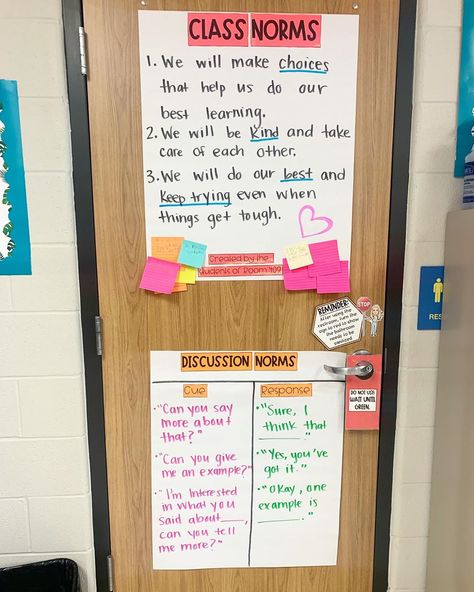 CLASS NORMS
1. We will make choices
that help us do our
best learning.
2. We will be kind and take
care of each other.
3. We will do our best and
keep trying even when
things get tough.
Created by the
students of Room 409
REMINDER:
After using the
restroom, turn the
sign to red to show
the bathroom
needs to be
sanitized
STOP
RES
DO NOT USE
WAIT UNTIL
GREEN.
DISCUSSION NORMS
Cue
Response
• "Can you say
more about
that?"
• "Sure, I
think that
______."
• "Can you give
me an example?"
• "Yes, you've
got it."
• "I'm interested
in what you
said about ____,
can you tell
me more?"
• "Okay, one
example is
______."